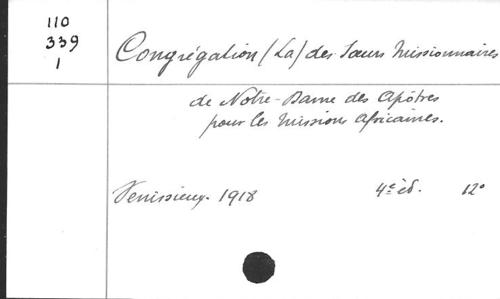 110
339
1
Congrégation (La) des Sœurs Missionnaires
de Notre-Dame des Apôtres
pour les Missions Africaines.
Venissieux. 1918 4e éd. 12°